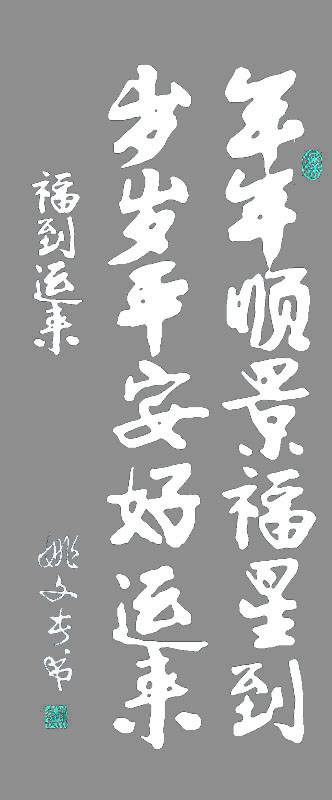 年年顺景福星到
岁岁平安好运来
福到运来
姚文考书